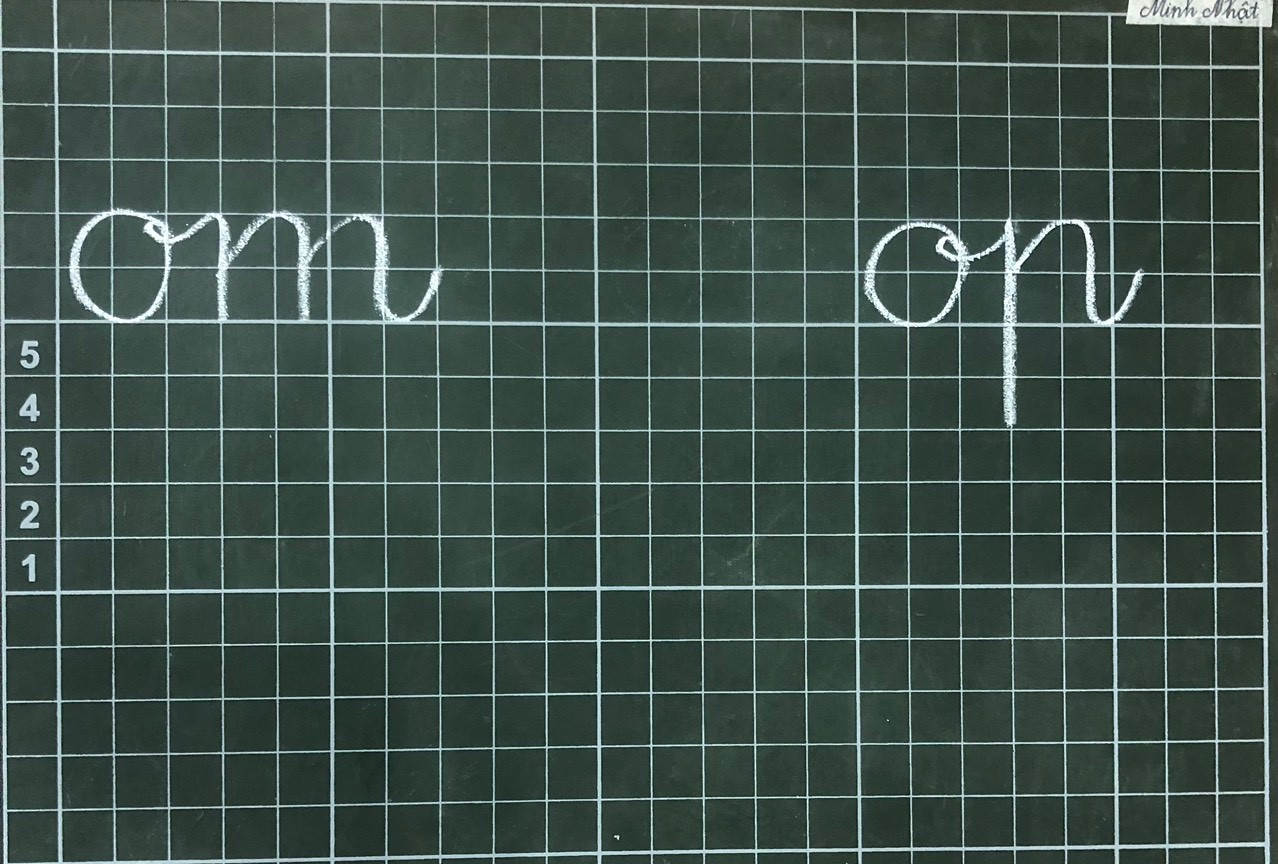 Minh Nhật
om op
5
4
3
2
1